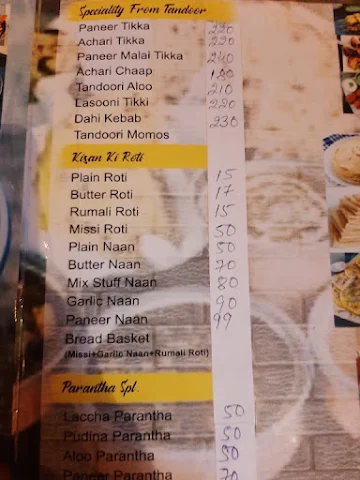 Speciality From Tandoor
Paneer Tikka 220
Achari Tikka 220
Paneer Malai Tikka 240
Achari Chaap 180
Tandoori Aloo 210
Lasooni Tikki 220
Dahi Kebab 230
Tandoori Momos
Kizan Ki Roti
Plain Roti 15
Butter Roti 17
Rumali Roti 15
Missi Roti 50
Plain Naan 50
Butter Naan 70
Mix Stuff Naan 80
Garlic Naan 90
Paneer Naan 99
Bread Basket
(Missi+Garlic Naan+Rumali Roti)
Parantha Spl.
Laccha Parantha 50
Pudina Parantha 50
Aloo Parantha 50
Paneer Parantha 70